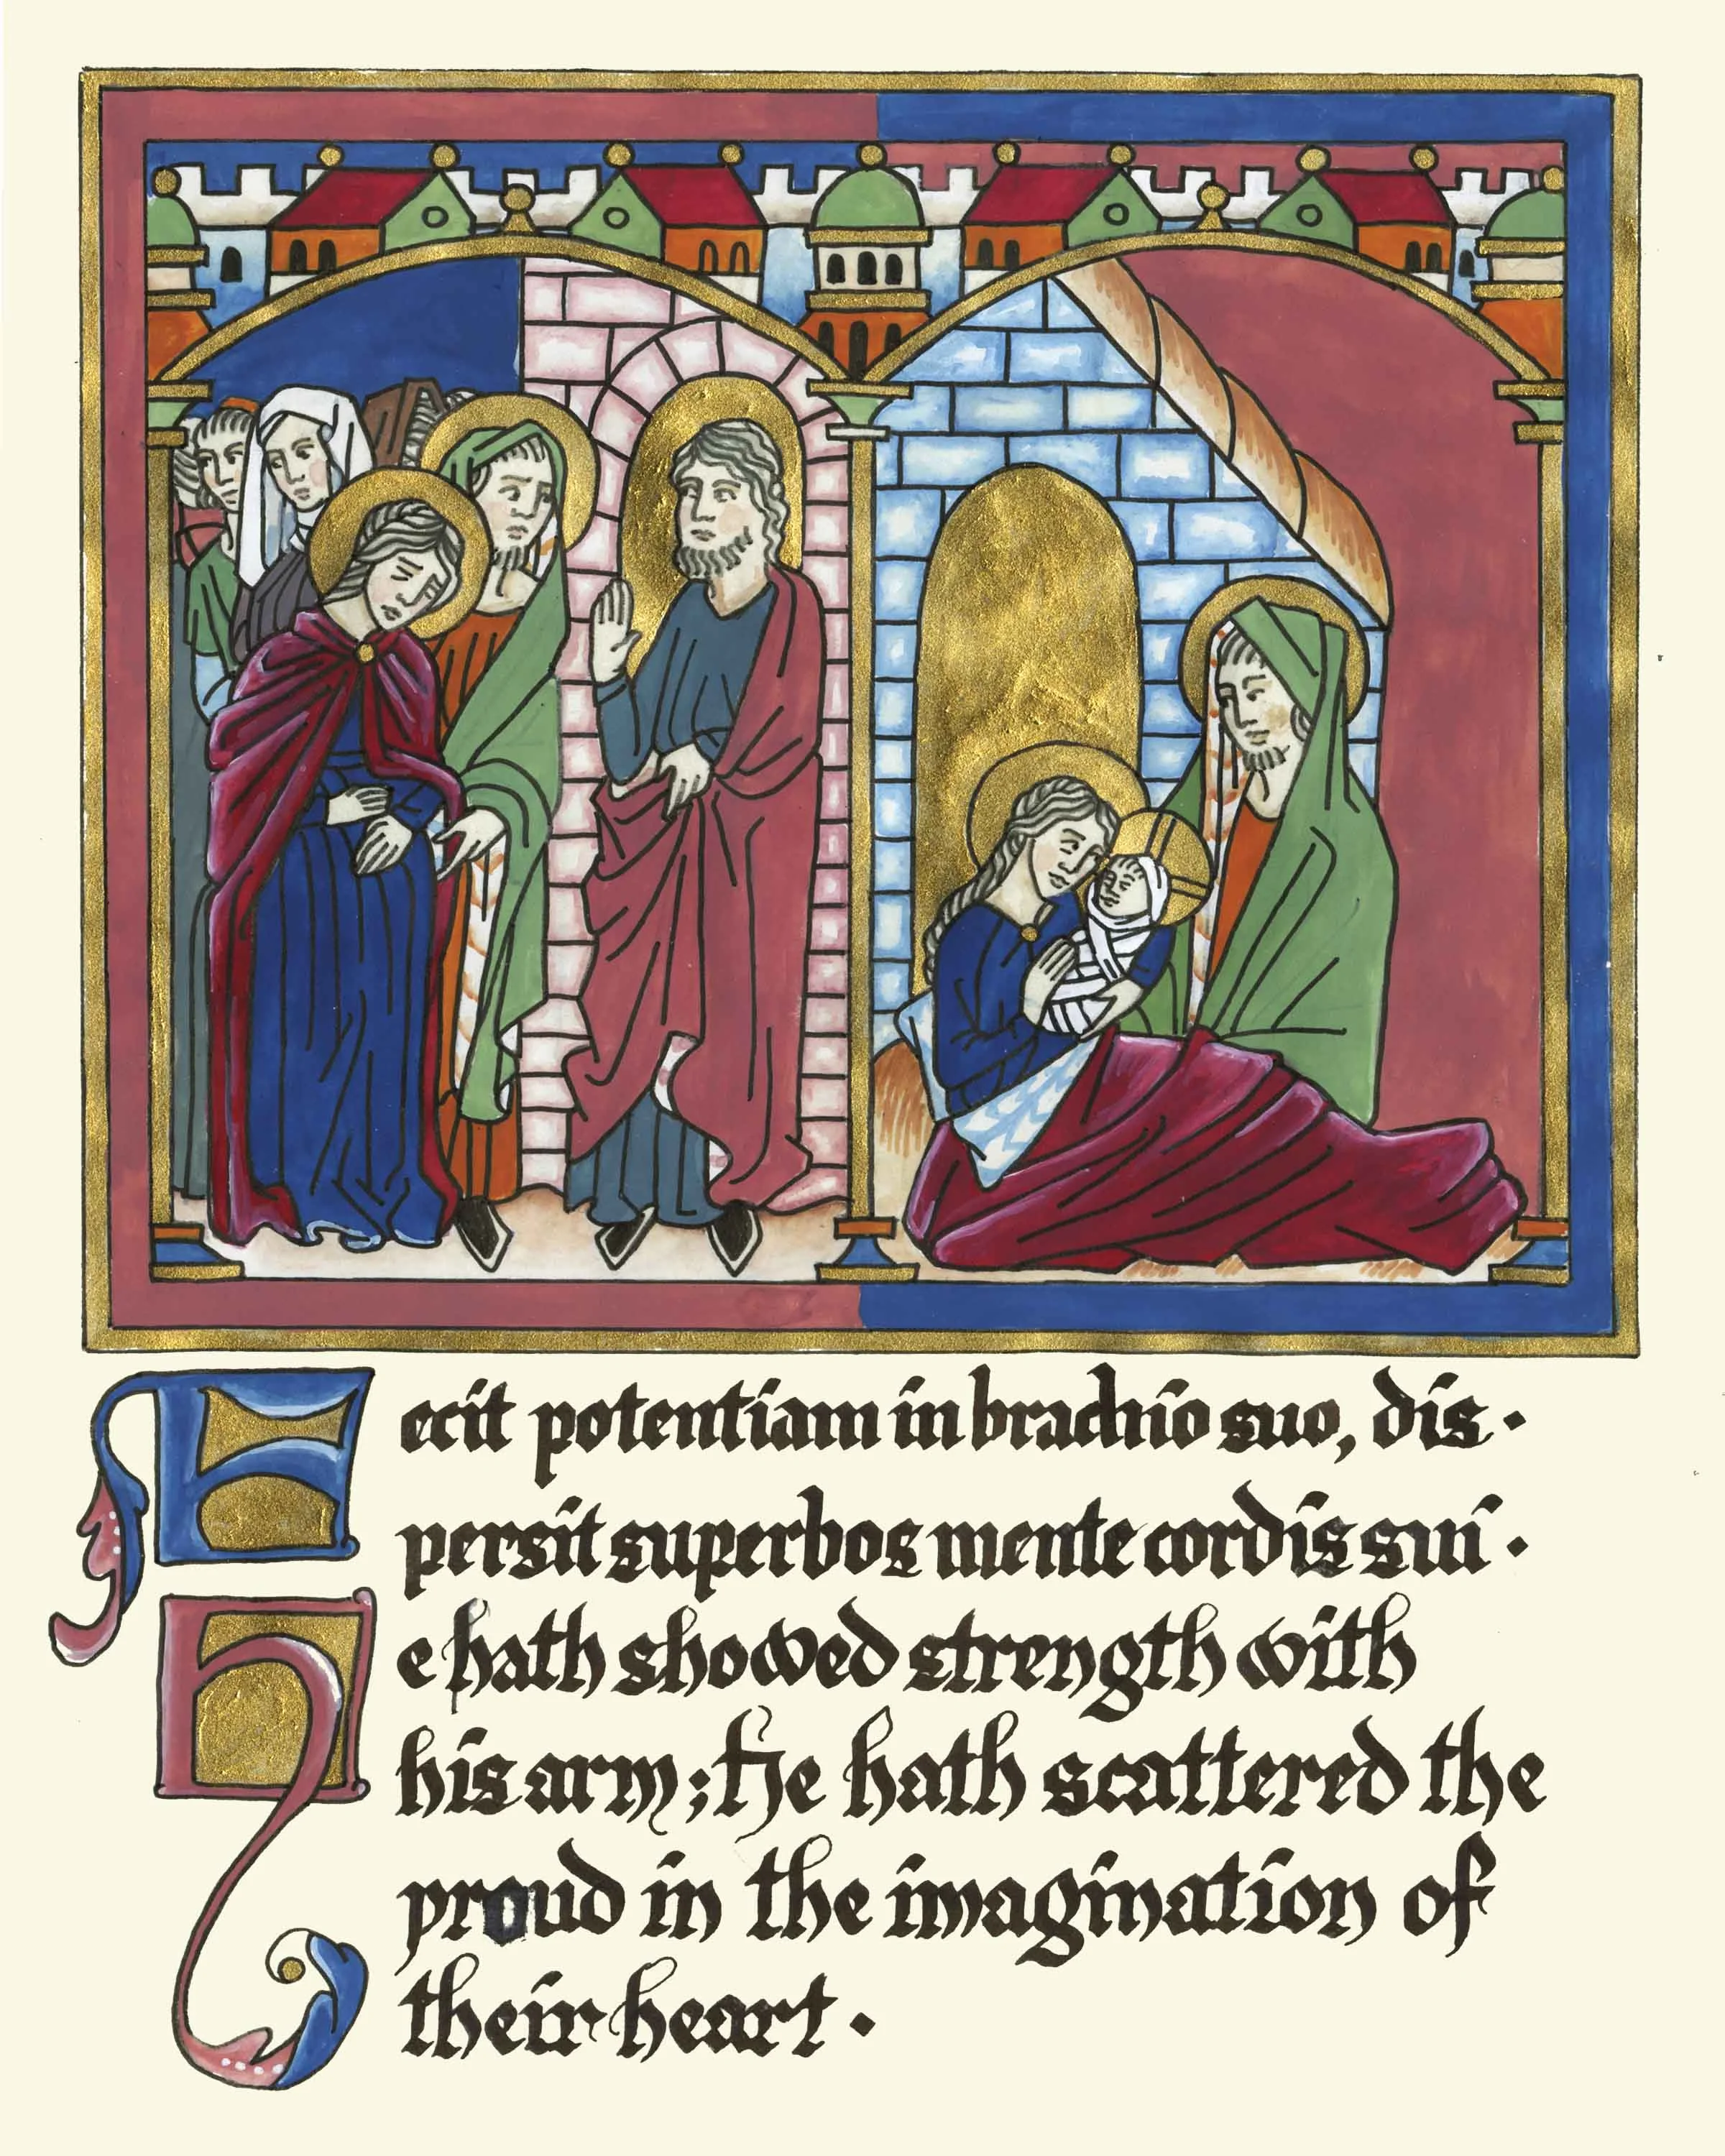 Fecit potentiam in brachio suo, dis·
persit superbos mente cordis sui·
He hath showed strength with
his arm; He hath scattered the
proud in the imagination of
their heart·